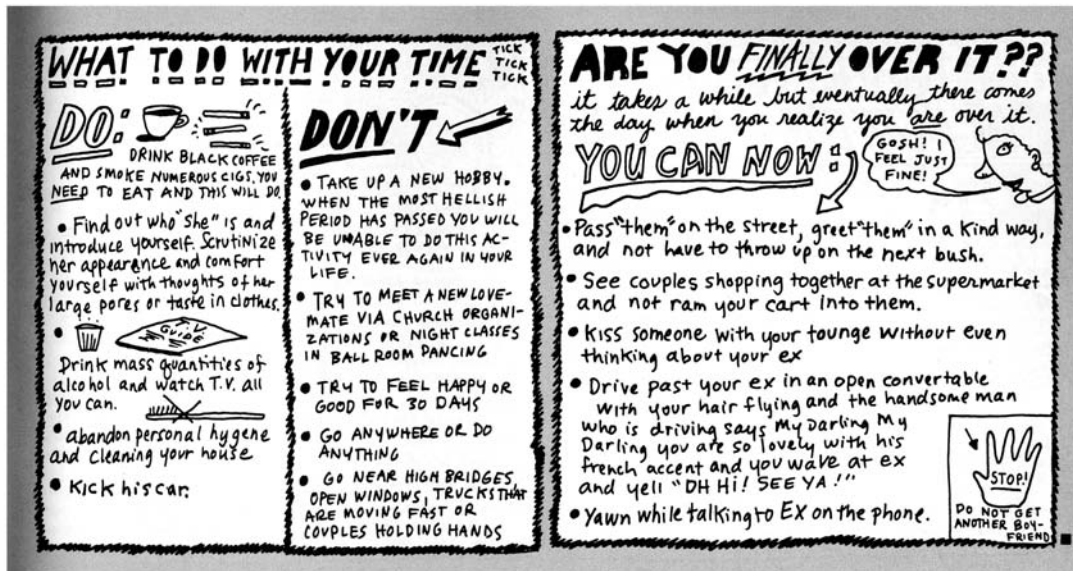 WHAT TO DO WITH YOUR TIME
TICK
TICK
TICK
DO:
DRINK BLACK COFFEE
AND SMOKE NUMEROUS CIGS, YOU
NEED TO EAT AND THIS WILL DO.
• Find out who "She" is and
introduce yourself. Scrutinize
her appearance and comfort
yourself with thoughts of her
large pores or taste in clothes.
•
T.V.
GUIDE
Drink mass quantities of
alcohol and watch T.V. all
you can.
• abandon personal hygene
and cleaning your house
• Kick his car.
DON'T
• TAKE UP A NEW HOBBY.
WHEN THE MOST HELLISH
PERIOD HAS PASSED YOU WILL
BE UNABLE TO DO THIS AC-
TIVITY EVER AGAIN IN YOUR
LIFE.
• TRY TO MEET A NEW LOVE-
MATE VIA CHURCH ORGANI-
ZATIONS OR NIGHT CLASSES
IN BALL ROOM DANCING
• TRY TO FEEL HAPPY OR
GOOD FOR 30 DAYS
• GO ANYWHERE OR DO
ANYTHING
• GO NEAR HIGH BRIDGES,
OPEN WINDOWS, TRUCKS THAT
ARE MOVING FAST OR
COUPLES HOLDING HANDS
ARE YOU FINALLY OVER IT??
it takes a while but eventually there comes
the day when you realize you are over it.
YOU CAN NOW:
GOSH! I
FEEL JUST
FINE!
• Pass "them" on the street, greet "them" in a kind way,
and not have to throw up on the next bush.
• See couples shopping together at the supermarket
and not ram your cart into them.
• Kiss someone with your tounge without even
thinking about your ex
• Drive past your ex in an open convertable
with your hair flying and the handsome man
who is driving says My Darling My
Darling you are so lovely with his
french accent and you wave at ex
and yell "OH Hi! SEE YA!"
• Yawn while talking to Ex on the phone.
STOP!
DO NOT GET
ANOTHER BOY-
FRIEND